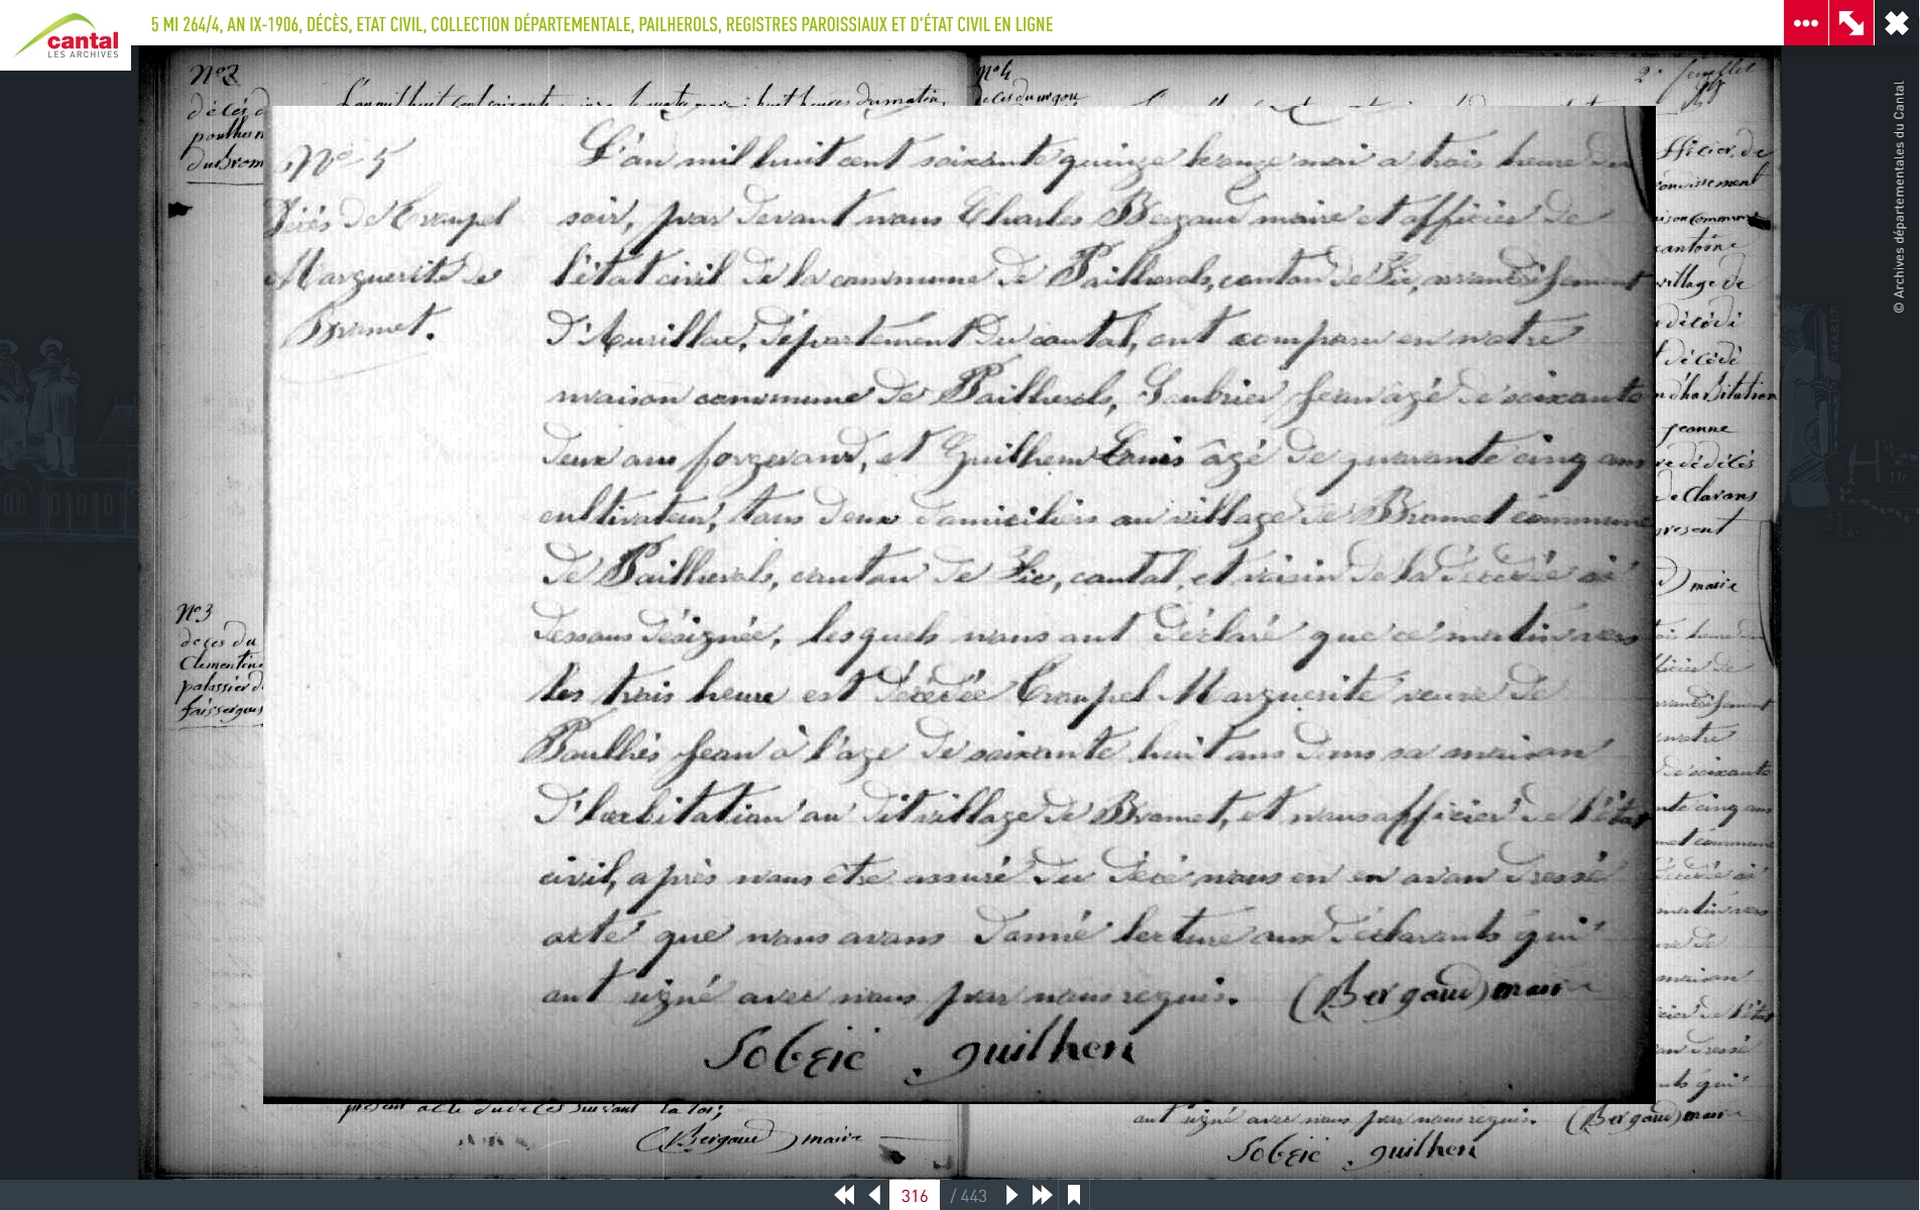 5 MI 264/4, AN IX-1906, DÉCÈS, ETAT CIVIL, COLLECTION DÉPARTEMENTALE, PAILHEROLS, REGISTRES PAROISSIAUX ET D'ÉTAT CIVIL EN LIGNE
cantal
LES ARCHIVES
© Archives départementales du Cantal
N° 2
décés d
N° 3
deces du
Clementine
N° 4
2e feuillet
N° 5
Décés de Croupel
Marguerite de
Bromet.
L'an mil huit cent soixante quinze le onze mai a trois heure du
soir, par devant nous Charles Bergaud maire et officier de
l'état civil de la commune de Pailherols, canton de Vic, arrondissement
d'Aurillac, département du cantal, ont comparu en notre
maison commune de Pailherols, Saubrier jean agé de soixante
deux ans forgerand, et Guilhem Louis âgé de quarante cinq ans
cultivateur, tous deux domiciliés au village de Bromet commune
de Pailherols, canton de Vic, cantal, et voisin de la décédée ci
dessous désignée, lesquels nous ont déclaré que ce matin vers
les trois heure est décédée Croupel Marguerite veuve de
Poulhès jean à l'age de soixante huit ans dans sa maison
d'habitation au dit village de Bromet, et nous officier de l'état
civil, après nous être assuré du décé nous en en avon dressé
acte que nous avons donné lecture aux déclarants qui
ont signé avec nous par nous requis. (Bergaud) maire
Guilhen
présent acte du déces suivant la loi;
(Bergaud) maire
ont signé avec nous par nous requis. (Bergaud) maire
Guilhen
316 / 443